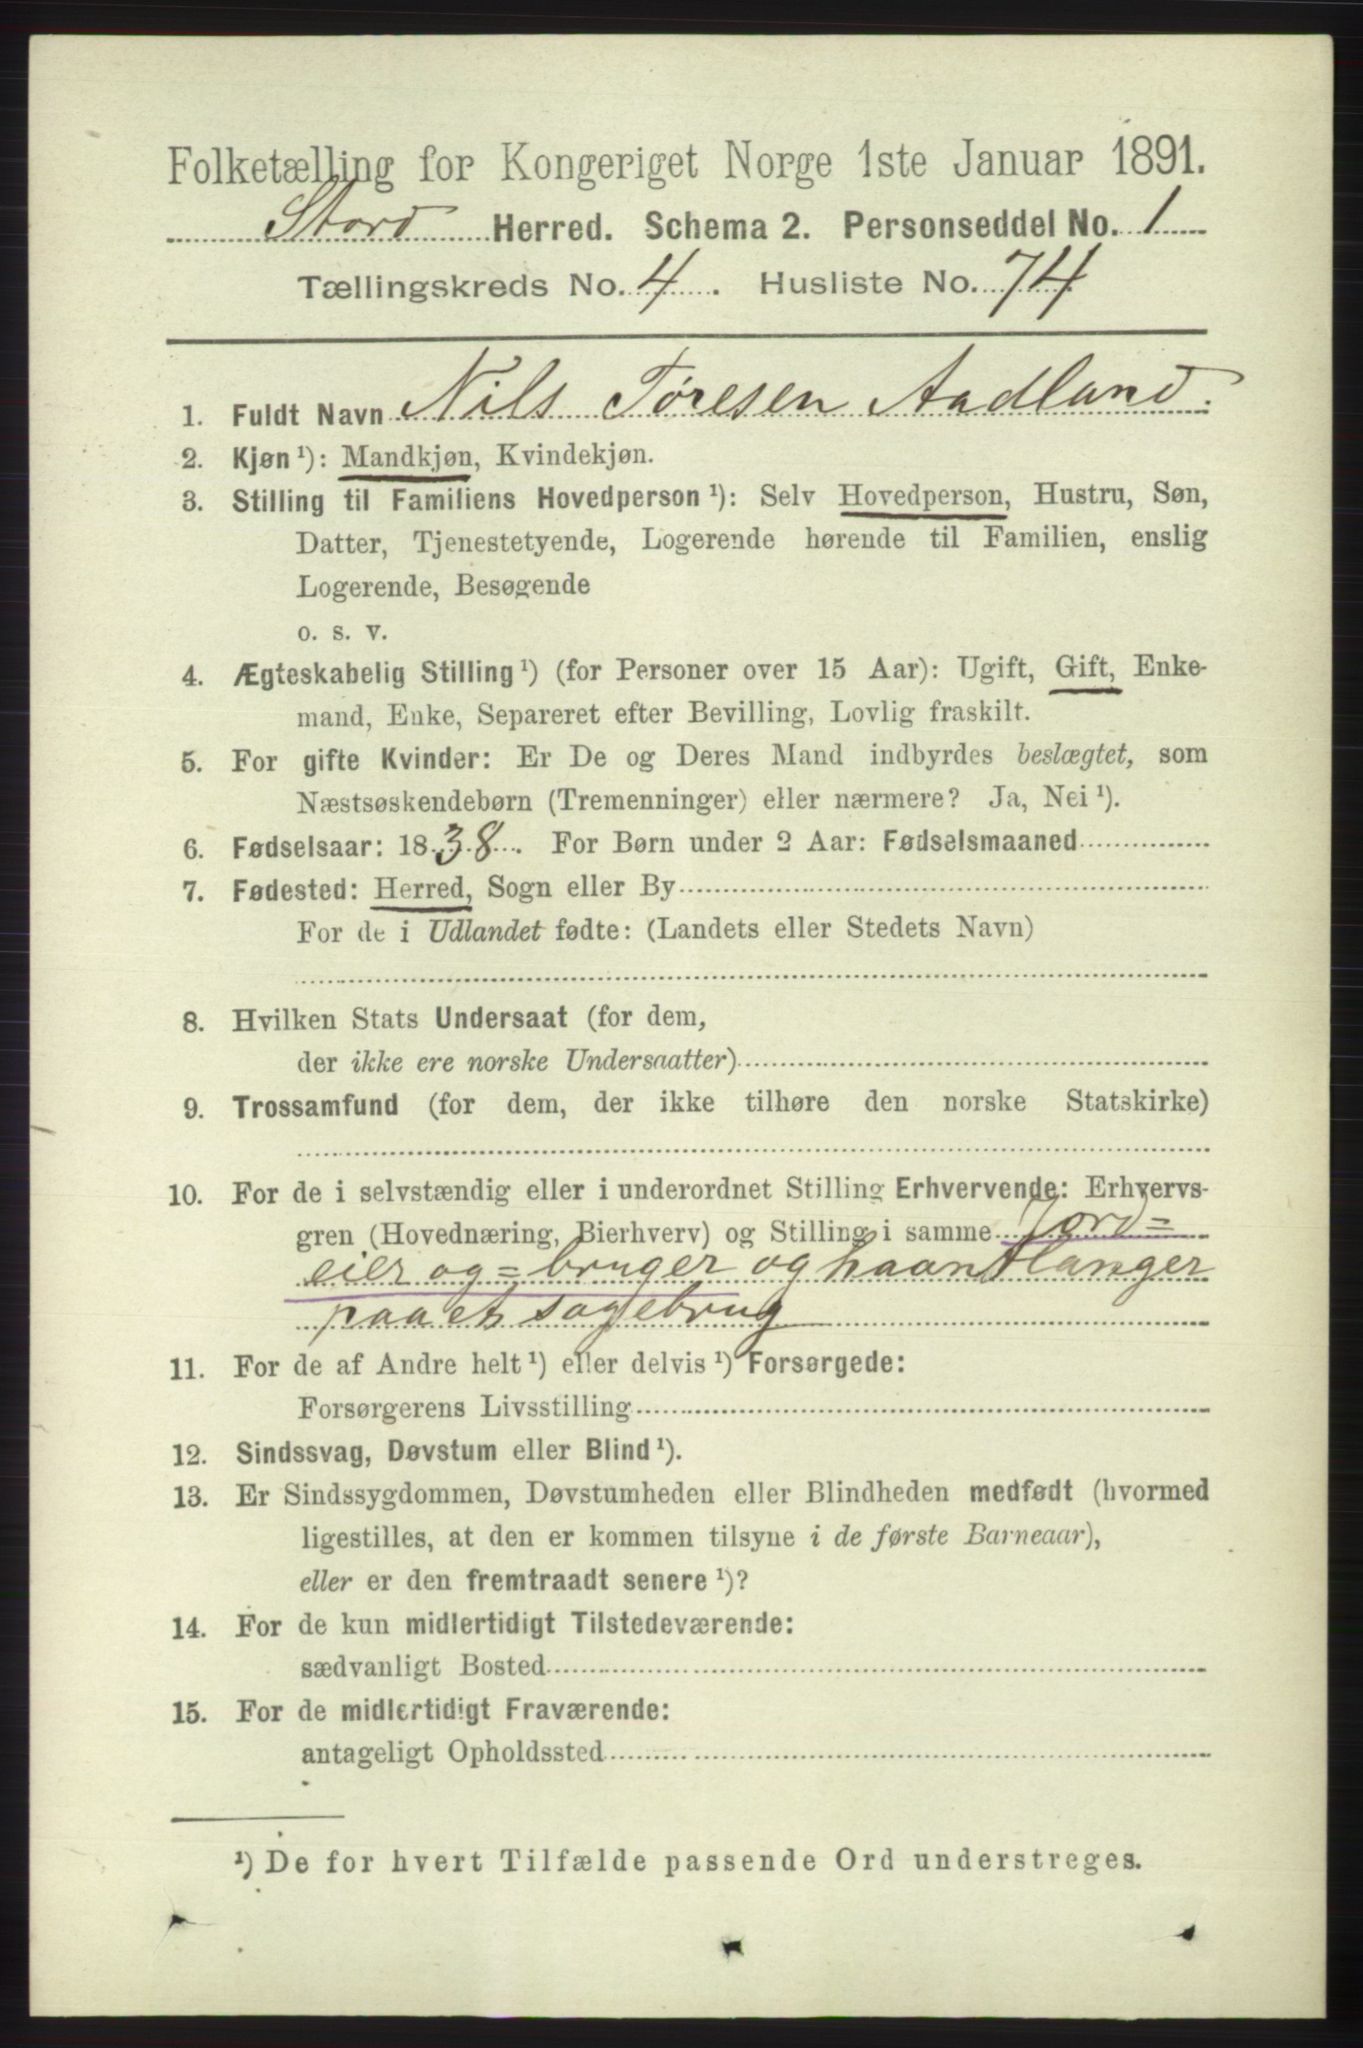 Folketælling for Kongeriget Norge 1ste Januar 1891.
Stord Herred. Schema 2. Personseddel No. 1
Tællingskreds No. 4. Husliste No. 74
1. Fuldt Navn Nils Tøresen Aadland.
2. Kjøn ¹): Mandkjøn, Kvindekjøn.
3. Stilling til Familiens Hovedperson ¹): Selv Hovedperson, Hustru, Søn,
Datter, Tjenestetyende, Logerende hørende til Familien, enslig
Logerende, Besøgende
o. s. v.
4. Ægteskabelig Stilling ¹) (for Personer over 15 Aar): Ugift, Gift, Enke-
mand, Enke, Separeret efter Bevilling, Lovlig fraskilt.
5. For gifte Kvinder: Er De og Deres Mand indbyrdes beslægtet, som
Næstsøskendebørn (Tremenninger) eller nærmere? Ja, Nei ¹).
6. Fødselsaar: 1838. For Børn under 2 Aar: Fødselsmaaned
7. Fødested: Herred, Sogn eller By
For de i Udlandet fødte: (Landets eller Stedets Navn)
8. Hvilken Stats Undersaat (for dem,
der ikke ere norske Undersaatter)
9. Trossamfund (for dem, der ikke tilhøre den norske Statskirke)
10. For de i selvstændig eller i underordnet Stilling Erhvervende: Erhvervs-
gren (Hovednæring, Bierhverv) og Stilling i samme Jord=
eier og=bruger og haantlanger
paa et sagebrug
11. For de af Andre helt ¹) eller delvis ¹) Forsørgede:
Forsørgerens Livsstilling
12. Sindssvag, Døvstum eller Blind ¹).
13. Er Sindssygdommen, Døvstumheden eller Blindheden medfødt (hvormed
ligestilles, at den er kommen tilsyne i de første Barneaar),
eller er den fremtraadt senere ¹)?
14. For de kun midlertidigt Tilstedeværende:
sædvanligt Bosted
15. For de midlertidigt Fraværende:
antageligt Opholdssted
¹) De for hvert Tilfælde passende Ord understreges.